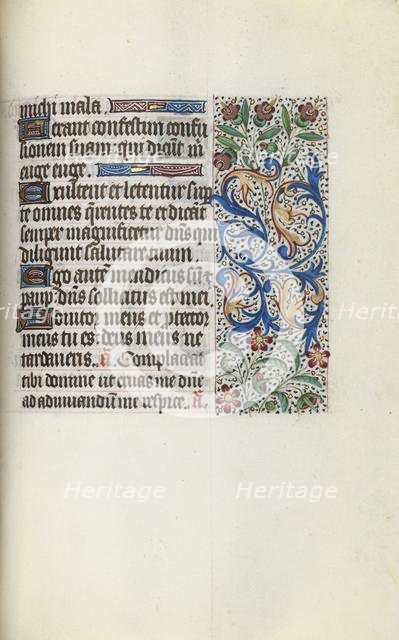 michi mala.
Ferant confestim confu
sionem suam: qui dicūt m̄
euge euge.
Exultent et letentur sup
te omnes q̄rentes te et dicāt
semper magnificetur dn̄s qui
diligunt salutare tuum.
Ego autem mendicus sū et
paup: dn̄s sollicitus est mei
Adiutor meus et ꝓtector
meus tu es: deus meus ne
tardaueris. añ. Complaceat
tibi domine ut eruas me dn̄e
ad adiuuandū me respice. añ.
Heritage
Heritage
Heritage
Heritage
Heritage
Heritage